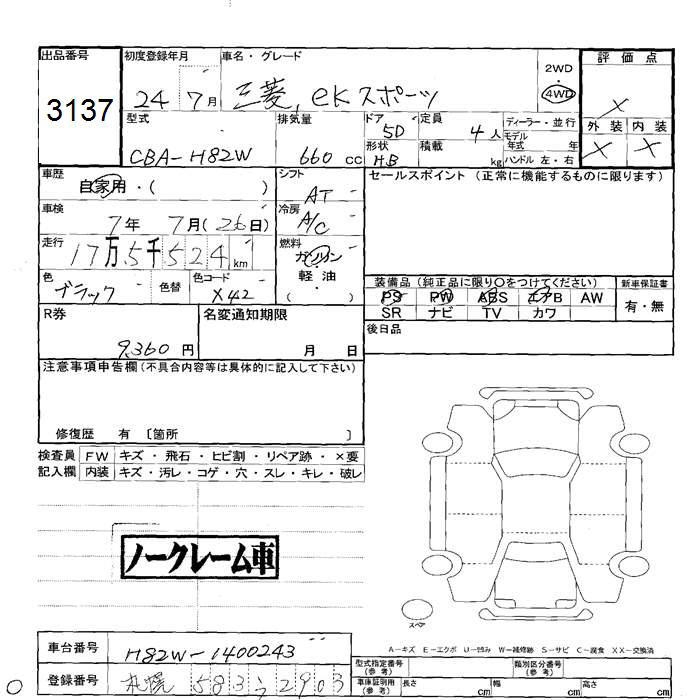 出品番号 初度登録年月 車名・グレード 2WD 評価点
3137 24 7月 三菱, eKスポーツ 4WD X
型式 排気量 ドア 定員 ディーラー・並行 外装 内装
CBA-H82W 660 cc 5D 4人 モデル年式 年 X X
形状 H.B 積載 kg ハンドル 左・右
車歴 シフト セールスポイント (正常に機能するものに限ります)
自家用・( ) AT
車検 冷房
7年 7月(26日) A/C
走行 燃料
17万5千524km ガソリン
色 色替 色コード 軽油
ブラック X42 ( )
装備品 (純正品に限り○をつけてください) 新車保証書
PS PW ABS エアB AW 有・無
SR ナビ TV カワ
R券 名変通知期限 後日品
9,360円 月 日
注意事項申告欄(不具合内容等は具体的に記入して下さい)
修復歴 有 〔箇所 〕
検査員 FW キズ・飛石・ヒビ割・リペア跡・×要
記入欄 内装 キズ・汚レ・コゲ・穴・スレ・キレ・破レ
ノークレーム車
スペア
A-キズ E-エクボ U-凹み W-補修跡 S-サビ C-腐食 XX-交換済
車台番号 H82W-1400243
登録番号 札幌 583 う 2903
型式指定番号(参考) 類別区分番号(参考)
車庫証明用(参考) 長さ cm 幅 cm 高さ cm